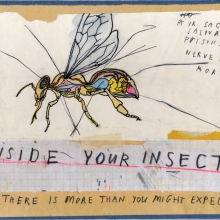 AIR SAC
SALIVA
POISON
NERVE
INSIDE YOUR INSECT
THERE IS MORE THAN YOU MIGHT EXPEC